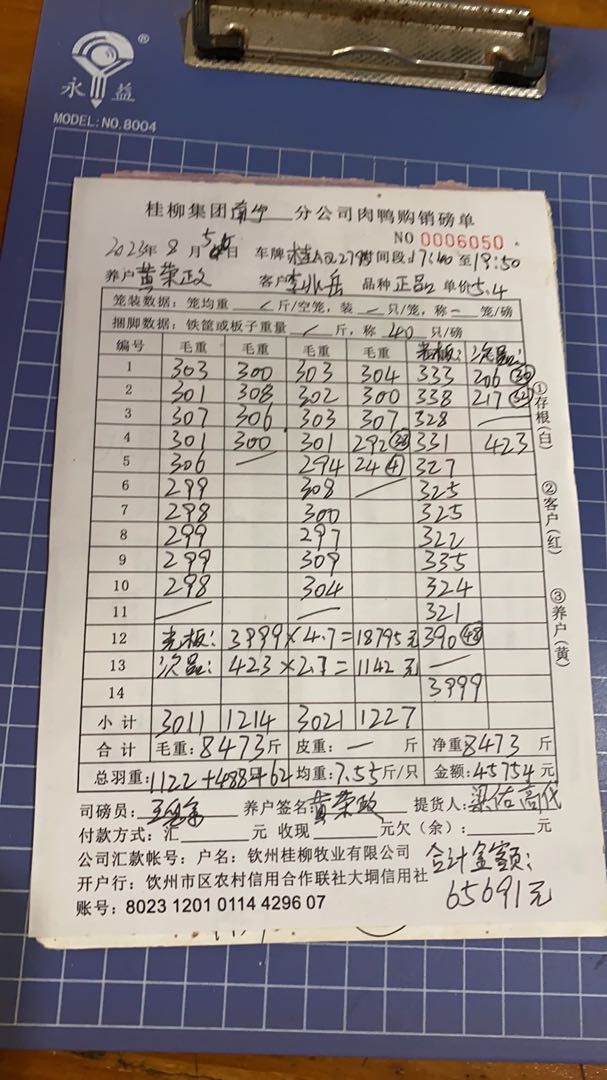 永益
®
MODEL:NO.8004
桂柳集团南宁分公司肉鸭购销磅单
NO 0006050
2023年8月5日 车牌 时间段17:40至19:50
养户黄荣政 客户李兆岳 品种正品 单价5.4
笼装数据：笼均重 / 斤/空笼，装 一 只/笼，称 一 笼/磅
捆脚数据：铁筐或板子重量 / 斤，称 40 只/磅
编号 毛重 毛重 毛重 毛重 光板： 次品：
1 303 300 303 304 333 206 (30)
2 301 308 302 300 338 217 (32)
3 307 306 303 307 328 —
4 301 300 301 292 (38) 331 423
5 306 — 294 24 (4) 327
6 299 308 — 325
7 298 300 325
8 299 297 322
9 299 309 335
10 298 304 324
11 — — 321
12 光板：3999×4.7=18795元 390 (48)
13 次品：423×2.7=1142元 —
14 3999
小计 3011 1214 3021 1227
合计 毛重：8473斤 皮重：一 斤 净重8473 斤
总羽重：1122+488+62 均重：7.55斤/只 金额：45754元
司磅员： 养户签名黄荣政 提货人：梁佑高代
付款方式：汇______元 收现______元欠（余）：______元
公司汇款帐号：户名：钦州桂柳牧业有限公司
合计金额：
开户行：饮州市区农村信用合作联社大垌信用社
65691元
账号：8023 1201 0114 4296 07
①存根(白)
②客户(红)
③养户(黄)